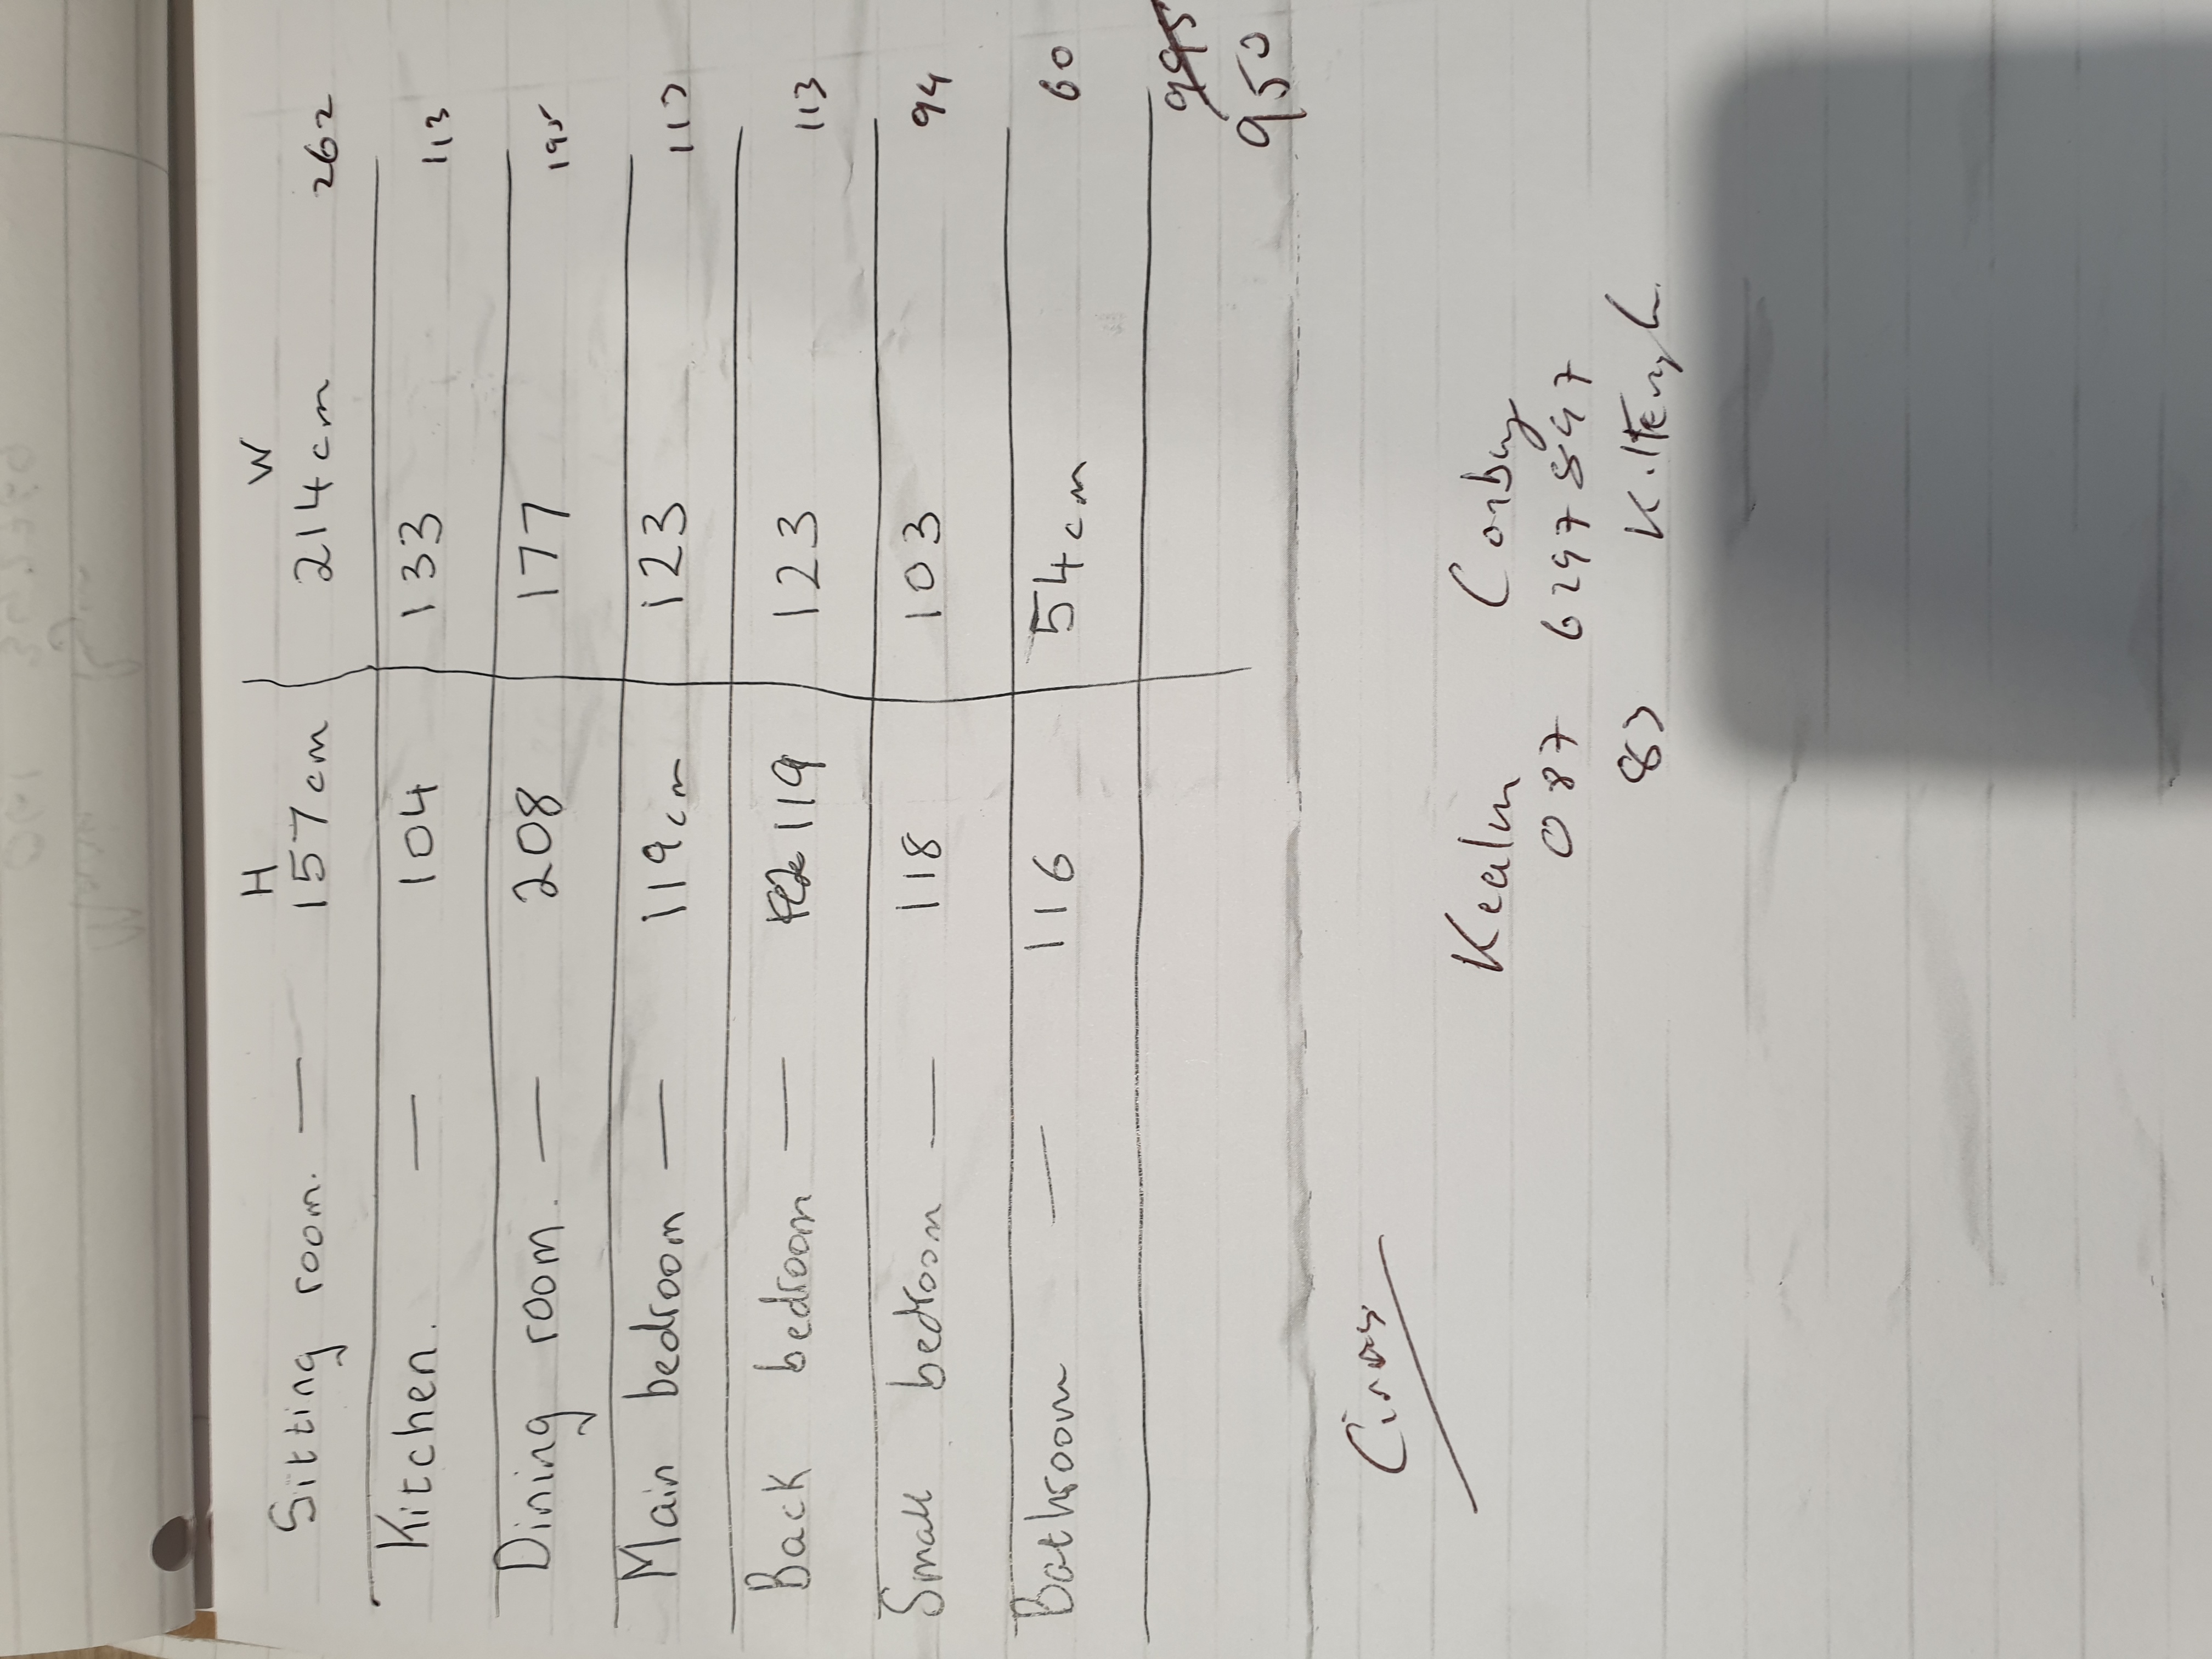 H W
Sitting room. — 157cm 214cm 262
Kitchen. — 104 133 113
Dining room. — 208 177 195
Main bedroom — 119cm 123 113
Back bedroom — 119 123 113
Small bedroom — 118 103 94
Bathroom — 116 54cm 60
995
950
Kealm Corby
087 6297547
83